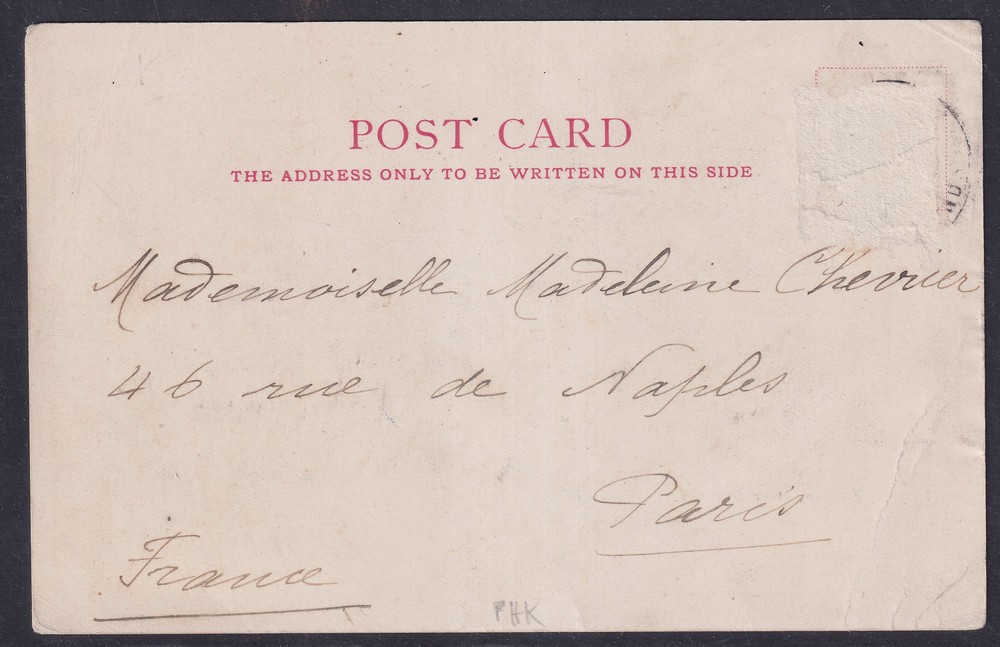 POST CARD
THE ADDRESS ONLY TO BE WRITTEN ON THIS SIDE
Mademoiselle Madeleine Chevrier
46 rue de Naples
Paris
France
PHK